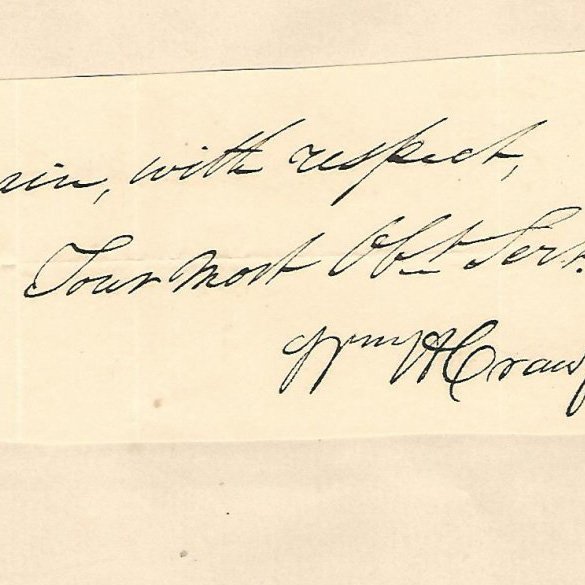 ain, with respect,
Your most Obt Servt
Wm H Craw